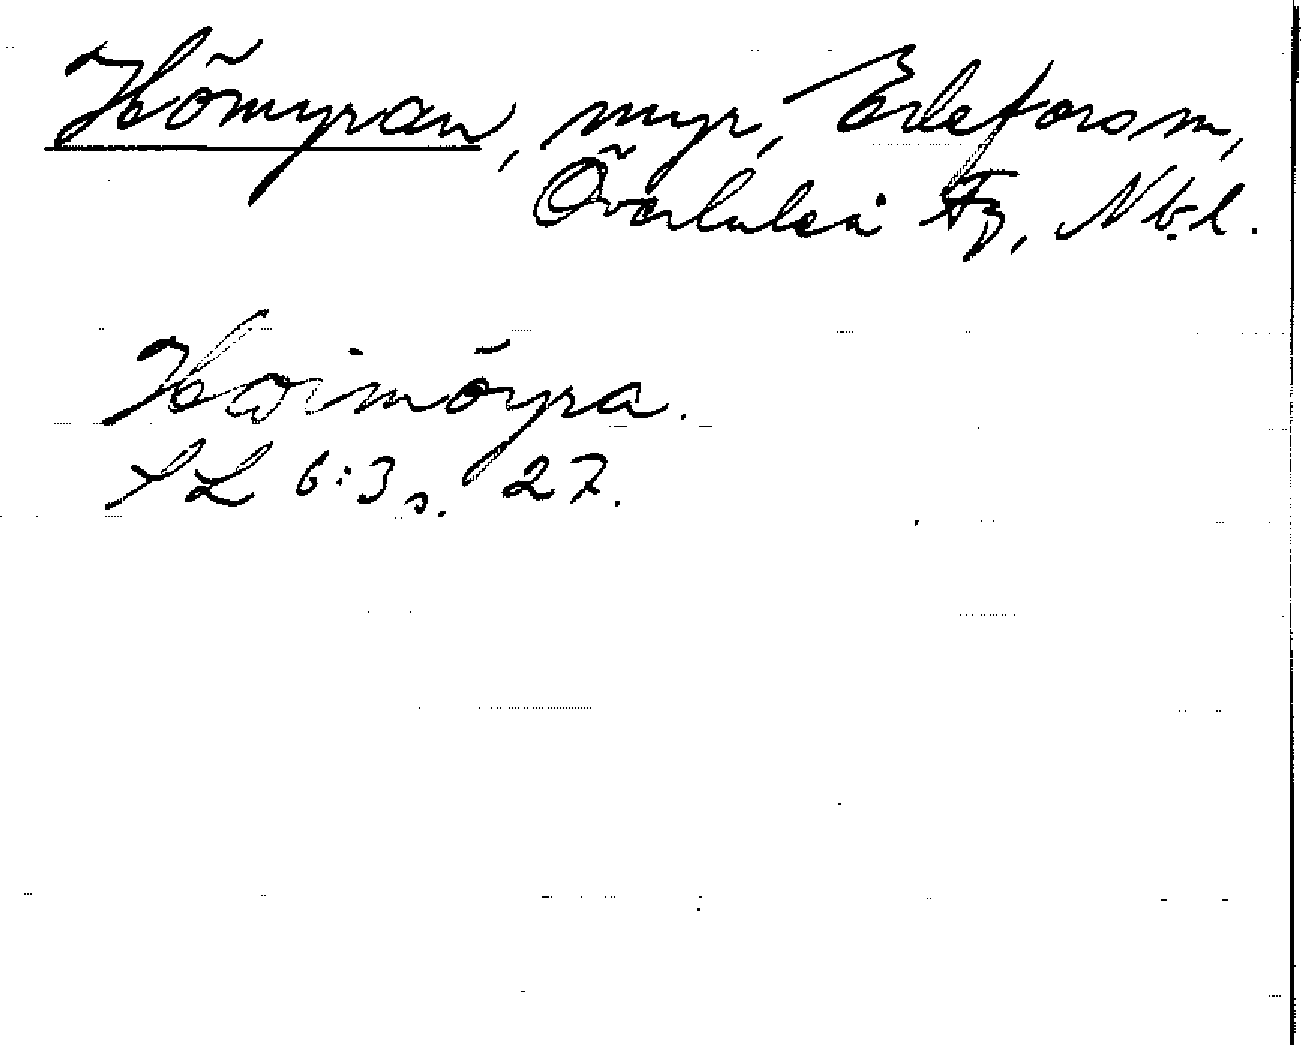 Hömyran, myr, Edeforsm,
Överluleå Fg, Nb. l.
Hoimöyra.
SL 6:3 s. 27.